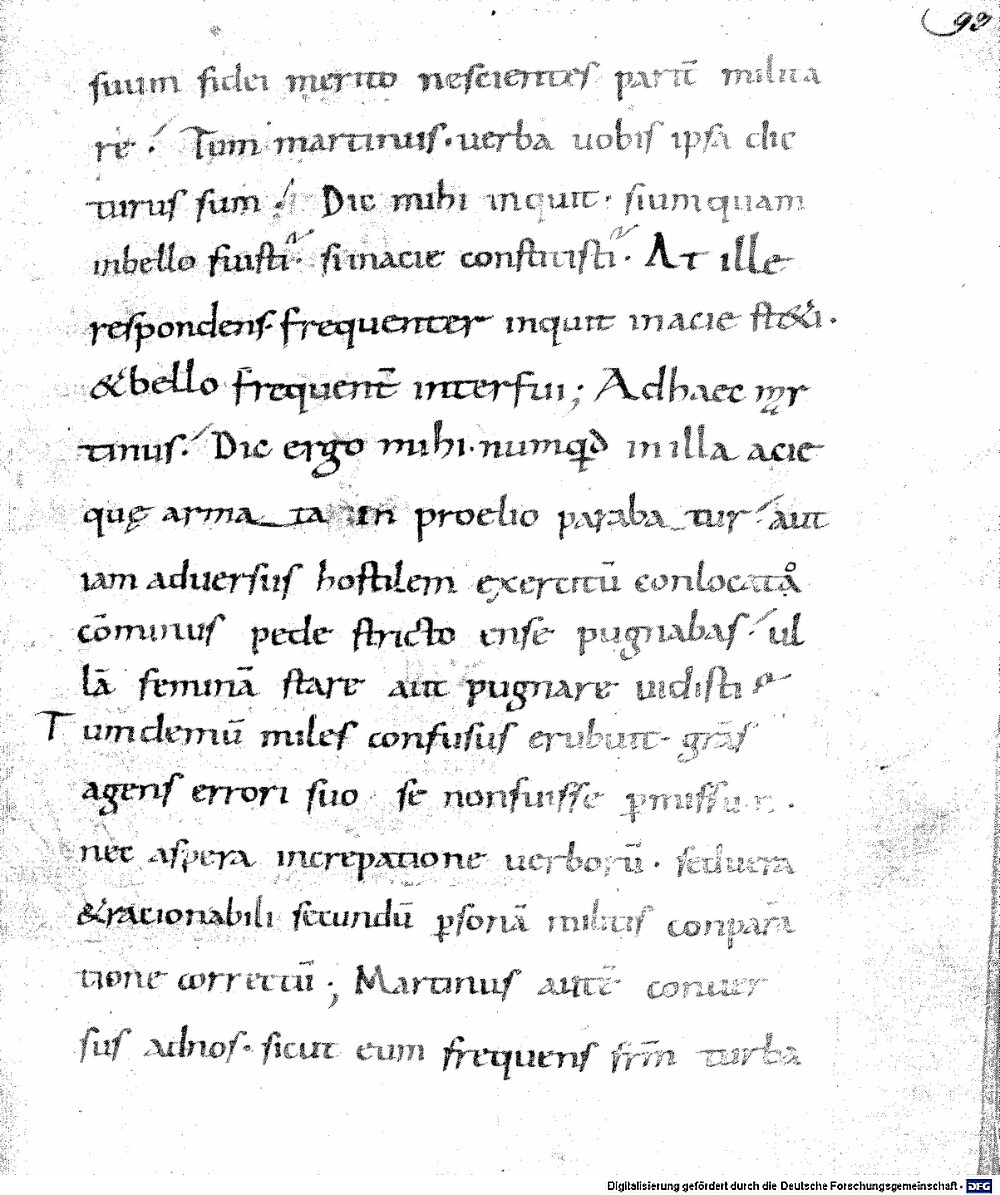 93
suum fidei merito nescientes parit̄ milita
re ! Tum martinus · uerba uobis ipsa dic
turus sum ! Dic mihi inquit · siumquam
inbello fuisti · sinacie constitisti · At ille
respondens · frequenter inquit inacie steti ·
& bello frequent̄ interfui ; Adhaec mar
tinus · Dic ergo mihi · numqd inilla acie
quę armata in proelio parabatur aut
iam aduersus hostilem exercitū conlocata
cōminus pede stricto ense pugnabas ul
lā feminā stare aut pugnare uidisti
Tumdemū miles confusus erubuit grās
agens errori suo se nonfuisse ꝑmissum ·
nec aspera increpatione uerborū · seduera
&racionabili secundū ꝑsonā militis conpara
tione correctū ; Martinus autē conuer
sus adnos · sicut eum frequens frm̄ turba
Digitalisierung gefördert durch die Deutsche Forschungsgemeinschaft - DFG